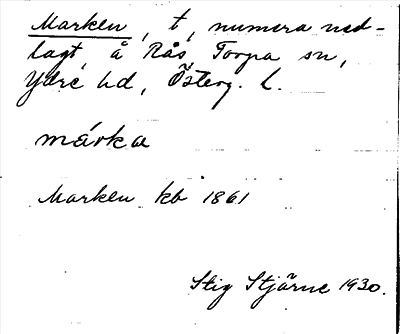 Marken, t, numera ned-
lagt, å Rås, Torpa sn,
Ydre hd, Österg. l.
márka
Marken kb 1861
Stig Stjärne 1930.